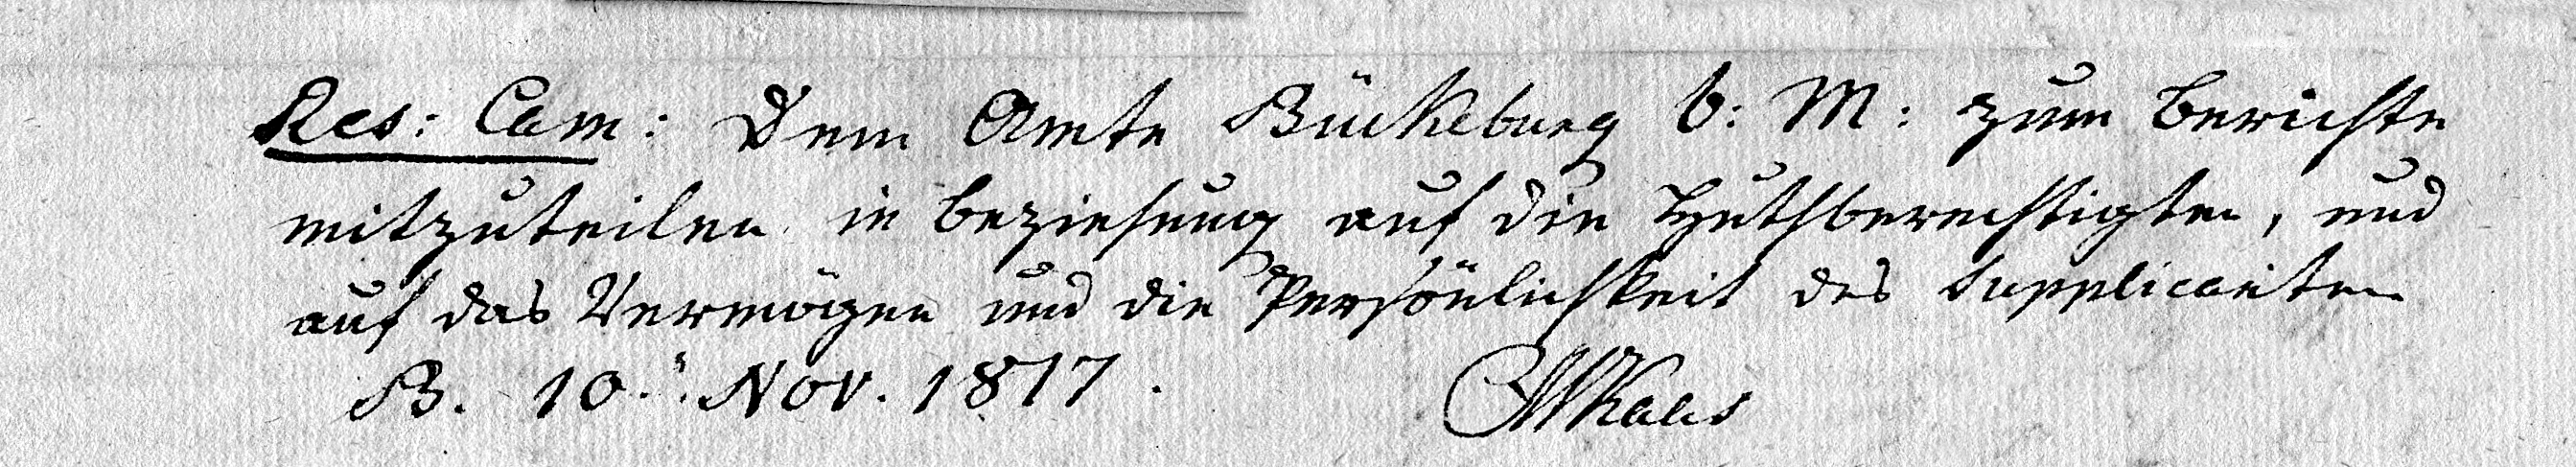 Res: Cam: Dem Amte Bückeburg b: M: zum Berichte
mitzuteilen in Beziehung auf die Huthberechtigten, und
auf das Vermögen und die Persönlichkeit des Supplicanten
B. 10. Nov. 1817.